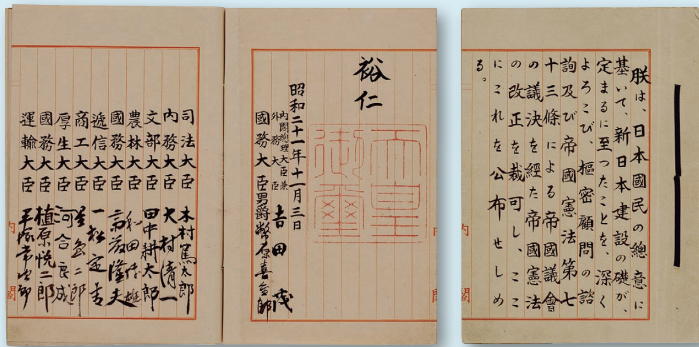 朕は、日本國民の總意に
基いて、新日本建設の礎が、
定まるに至つたことを、深く
よろこび、樞密顧問の諮
詢及び帝國憲法第七
十三條による帝國議會
の議決を経た帝國憲法
の改正を裁可し、ここ
にこれを公布せしめ
る。
裕仁
天皇
御璽
昭和二十一年十一月三日
內閣總理大臣兼
外務大臣 吉田茂
國務大臣 男爵幣原喜重郎
司法大臣 木村篤太郎
內務大臣 大村清一
文部大臣 田中耕太郎
農林大臣 和田博雄
國務大臣 斎藤隆夫
遞信大臣 一松定吉
商工大臣 星島二郎
厚生大臣 河合良成
國務大臣 植原悦二郎
運輸大臣 平塚常次郎
內閣
內閣